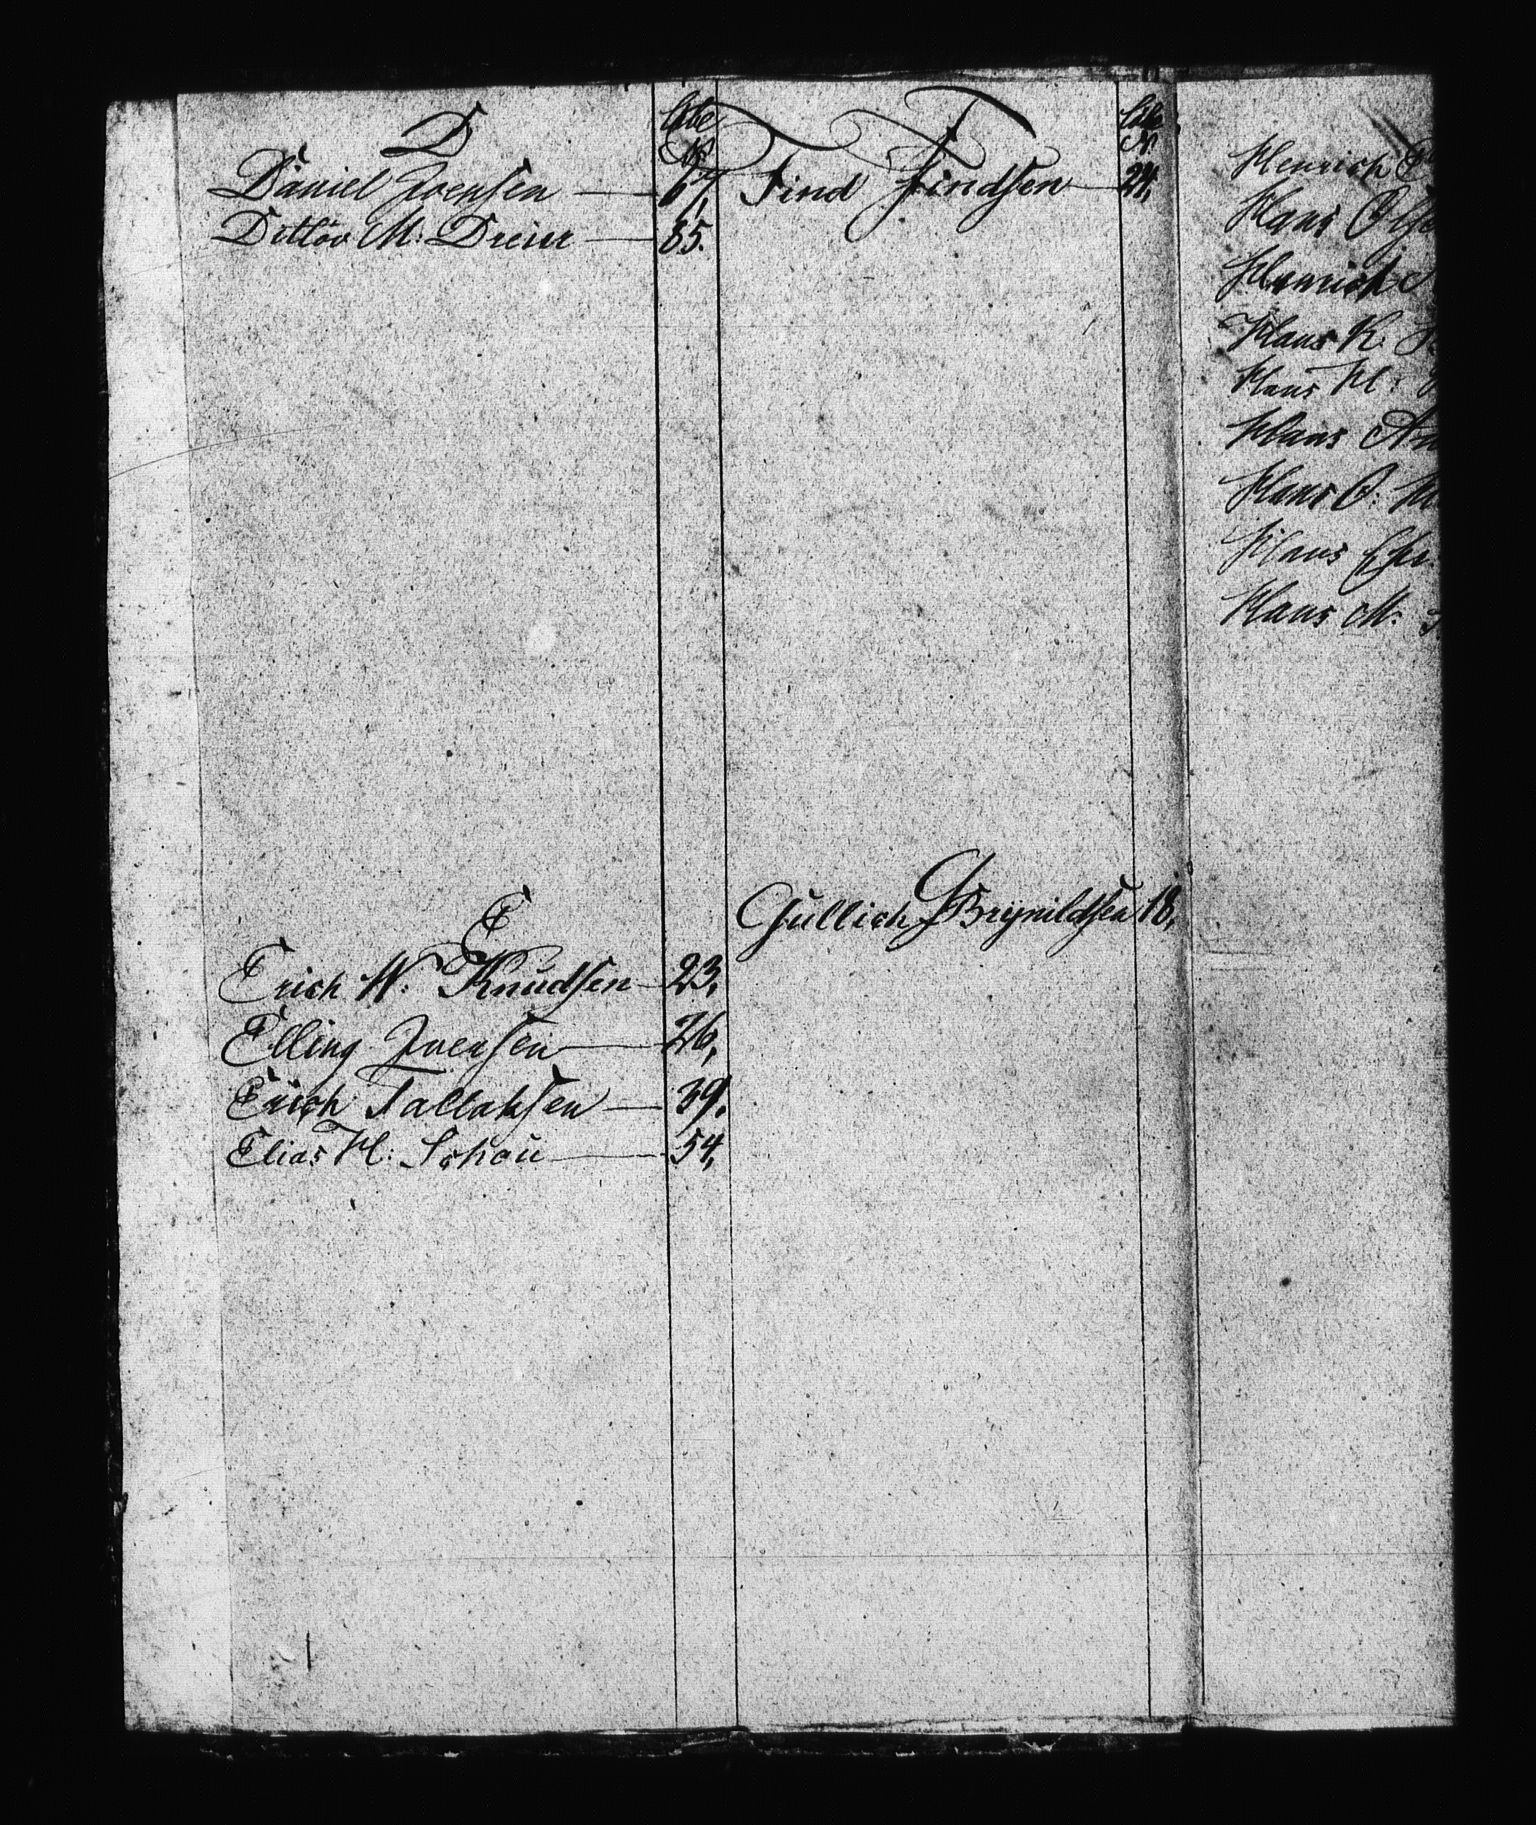 D
Lobe
No
Daniel Iversen 67,
Ditlöv M: Dreier 85.
E
Erich W. Knudsen 23,
Elling Iversen 26,
Erich Tallaksen 39.
Elias H: Schou 54,
F
Lobe
No
Find Findsen 24,
G
Gullich Brynildsen 18,
Henrich
Hans
Henrich
Hans K:
Hans H:
Hans
Hans O:
Hans
Hans M: